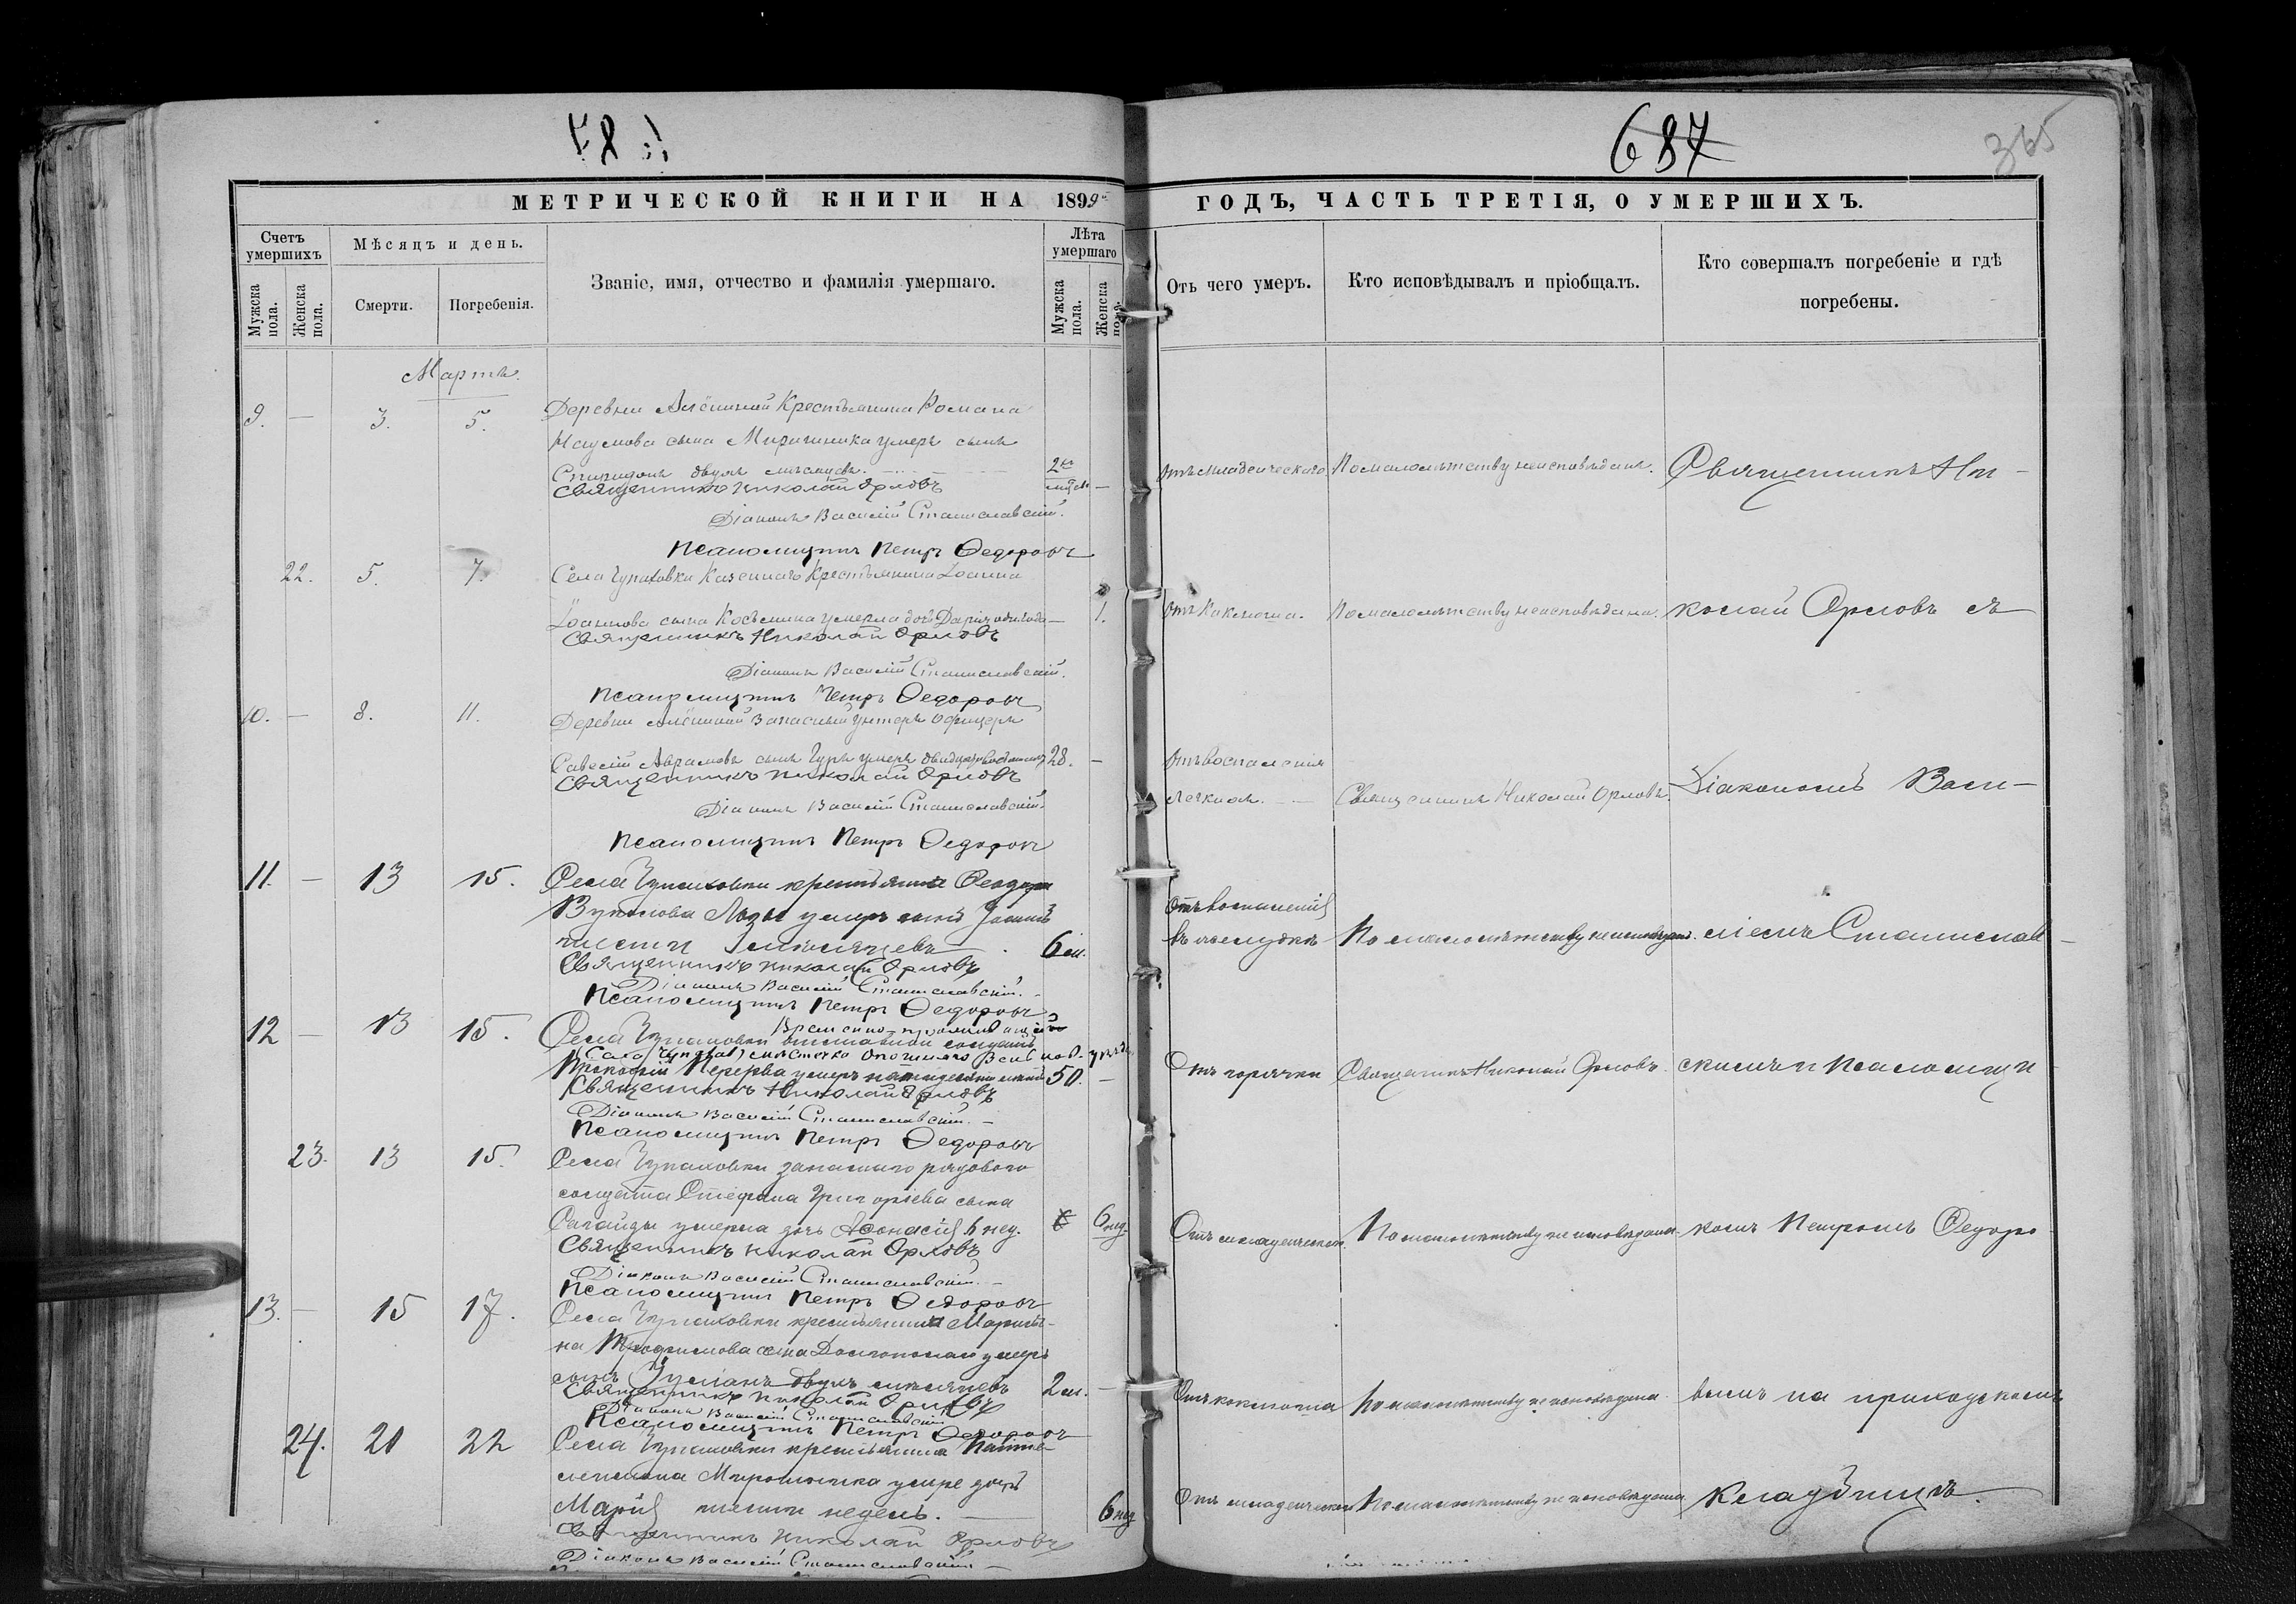 687
365
МЕТРИЧЕСКОЙ КНИГИ НА 1899 ГОДЪ, ЧАСТЬ ТРЕТІЯ, О УМЕРШИХЪ.
Счетъ умершихъ
Мѣсяцъ и день.
Званіе, имя, отчество и фамилія умершаго.
Лѣта умершаго
Мужска пола.
Женска пола.
Смерти.
Погребенія.
Мужска пола.
Женска пола.
Отъ чего умеръ.
Кто исповѣдывалъ и пріобщалъ.
Кто совершалъ погребеніе и гдѣ погребены.
Мартъ.
9. — 3. 5. Деревни Крестьянина Романа
Наумова сына умеръ сынъ
Спиридонъ двухъ мѣсяцевъ. 2хъ мѣс. — Отъ младенческаго По малолѣтству неисповѣданъ. Священникъ Ни-
Священникъ Николай Орловъ
Діаконъ Василій Станиславскій.
Псаломщикъ Петръ Ѳедоровъ
22. 5. 7. Села Чупаховки Казеннаго Крестьянина Іоанна
Іоаннова сына умерла дочь Дарія одного года — 1. Отъ Коклюша. По малолѣтству неисповѣдана. колай Орловъ съ
Священникъ Николай Орловъ
Діаконъ Василій Станиславскій.
Псаломщикъ Петръ Ѳедоровъ
10. — 8. 11. Деревни запасный унтеръ офицеръ
Аврамовъ сынъ умеръ 28. — Отъ воспаленія
легкихъ. — Священникъ Николай Орловъ. Діакономъ Васи-
Священникъ Николай Орловъ
Діаконъ Василій Станиславскій.
Псаломщикъ Петръ Ѳедоровъ
11. — 13 15. Села Чупаховки крестьянина Ѳеодора
умеръ сынъ Іоаннъ Отъ воспаленія
шести мѣсяцевъ — 6 м. въ желудкѣ По малолѣтству неисповѣданъ. ліемъ Станислав-
Священникъ Николай Орловъ
Діаконъ Василій Станиславскій.
Псаломщикъ Петръ Ѳедоровъ
12 — 13 15. Временно-проживающій
Села Чупаховки солдатъ
Прокофій Перерва умеръ 50. — Отъ горячки Священникъ Николай Орловъ. скимъ и псаломщи
Священникъ Николай Орловъ
Діаконъ Василій Станиславскій. —
Псаломщикъ Петръ Ѳедоровъ
23. 13 15. Села Чупаховки запаснаго рядового
солдата Стефана Григоріева сына
умерла дочь Аѳанасія 6 нед. 6 нед. Отъ младенческой. По малолѣтству не исповѣдана. комъ Петромъ Ѳедоро
Священникъ Николай Орловъ
Діаконъ Василій Станиславскій. —
Псаломщикъ Петръ Ѳедоровъ
13. — 15 17. Села Чупаховки крестьянина Марты-
на Трофимова сына умеръ
сынъ двухъ мѣсяцевъ 2 м. — Отъ коклюша По малолѣтству не исповѣданъ вымъ на приходскомъ
Священникъ Николай Орловъ
Діаконъ Василій Станиславскій
Псаломщикъ Петръ Ѳедоровъ
24. 21 22 Села Чупаховки крестьянина Панте-
леимона Мирошника умре дочь
Марія шести недель. — 6 нед Отъ младенческой По малолѣтству не исповѣдана. кладбищѣ.
Священникъ Николай Орловъ
Діаконъ Василій Станиславскій —